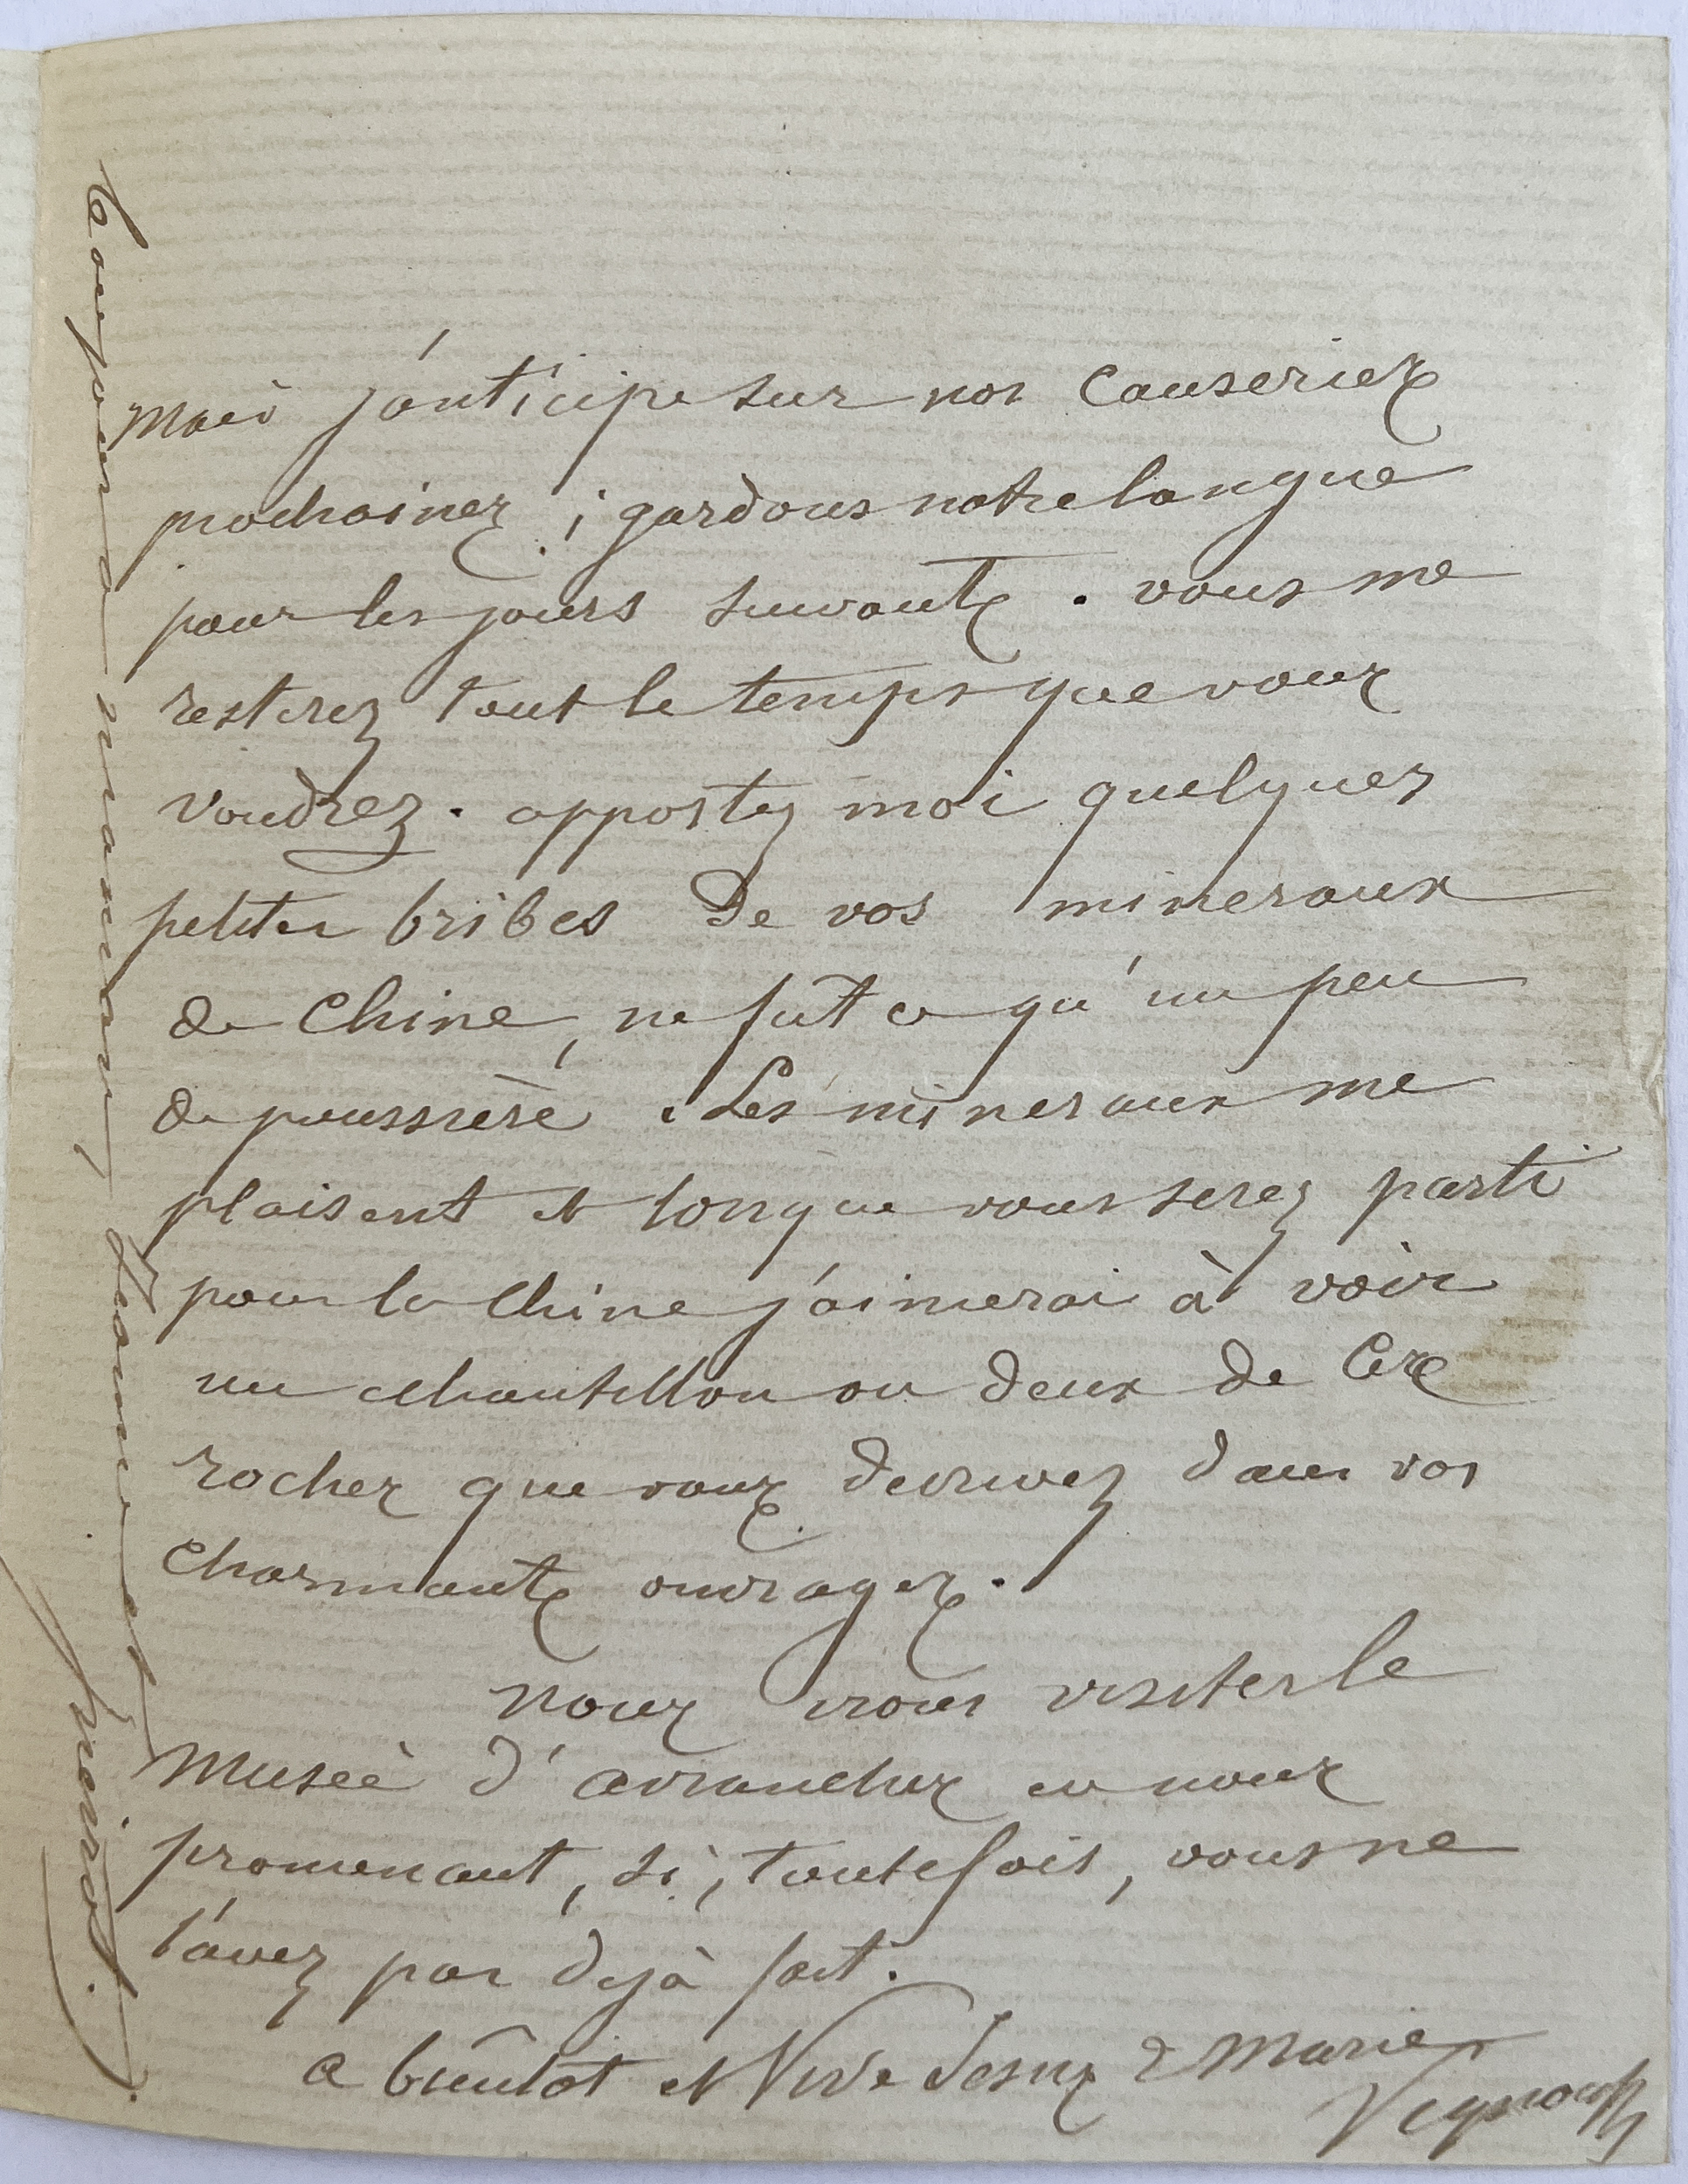 mais j'anticipe sur nos causeries
prochaines ; gardons notre langue
pour les jours suivants . vous me
resterez tout le temps que vous
voudrez . apportez moi quelques
petites bribes de vos mineraux
de Chine, ne fut ce qu'un peu
de poussière . Les mineraux me
plaisent et lorsque vous serez parti
pour la Chine j'aimerai à voir
un echantillon ou deux de ces
roches que vous decrivez dans vos
charmants ouvrages.
nous irons visiter le
Museè d'avranches en nous
promenant, si, toutefois, vous ne
l'avez pas dejà fait.
a bientôt et Vive Jesus & Marie